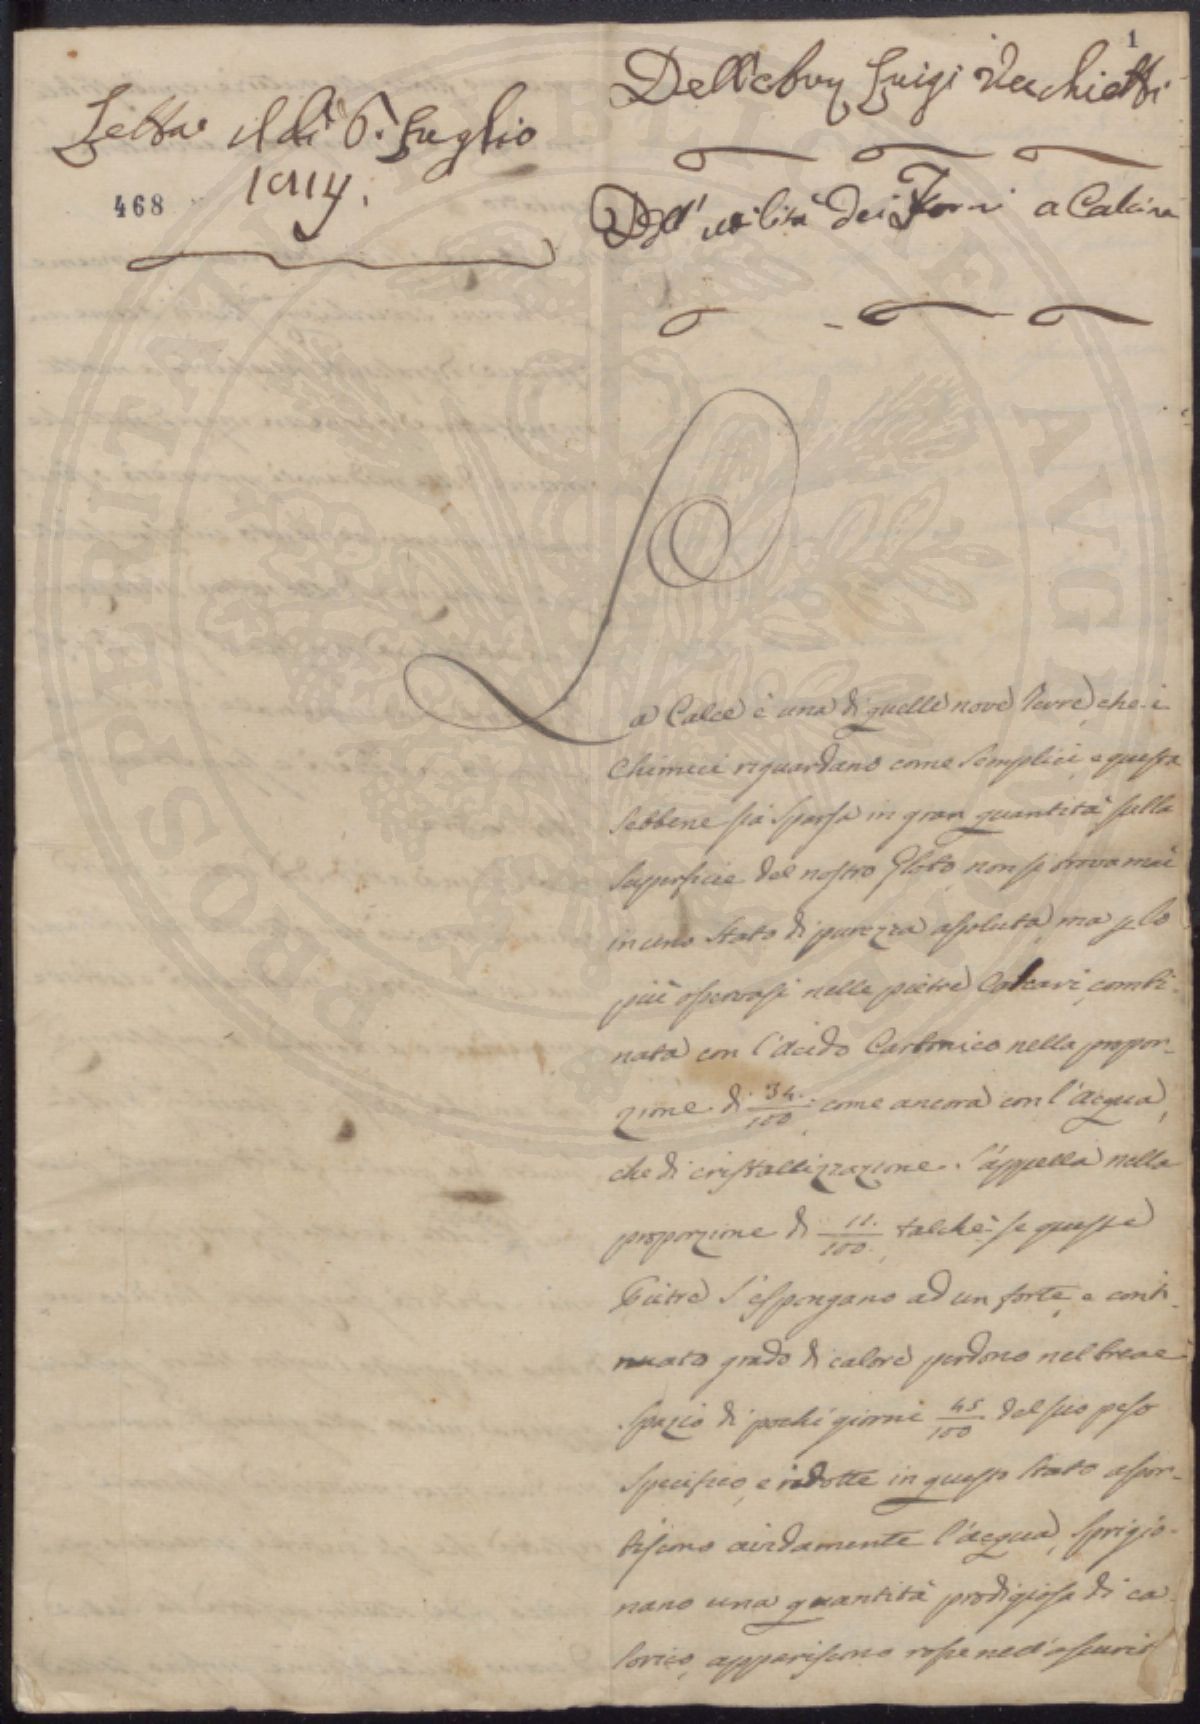 1
Dell' Luigi Vecchietti
Letta il dì 6. Luglio
1814.
468
Dell' utilità dei Forni a Calcina
La Calce è una di quelle nove terre, che i
Chimici riguardano come semplici, e questa
sebbene sia sparsa in gran quantità sulla
superficie del nostro Globo, non si trova mai
in uno stato di purezza assoluta, ma p lo
più osservasi nelle pietre Calcari, combi-
nata con l'acido Carbonico nella propor-
zione di 34./100. come ancora con l'acqua,
che di cristallizzazione s'appella nella
proporzione di 11./100., talchè se queste
Pietre s'espongano ad un forte, e conti-
nuato grado di calore perdono nel breve
spazio di pochi giorni 45/100 del suo peso
specifico, e ridotte in questo stato assor-
biscono avidamente l'acqua, sprigio-
nano una quantità prodigiosa di ca-
lorico, appariscono
PROSPERITATI PUBLICAE AUGENDAE